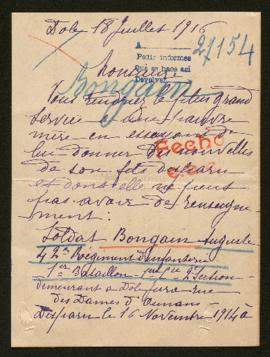 Dole 18 Juillet 1916
27154
A
Pedir informes
Que se hace así
Devolver
Monsieur
Bongain
Vous rendriez le plus grand
service à une pauvre
mère en essayant de
lui donner des nouvelles
Fecho
de son fils disparu
et dont elle ne peut
pas avoir de renseigne
ment:
Soldat Bongain Auguste
42e Regiment d'infanterie
1er Bataillon 2e Section
demeurant à Dole rue
des Dames d'Ounans
Disparu le 16 Novembre 1914 à